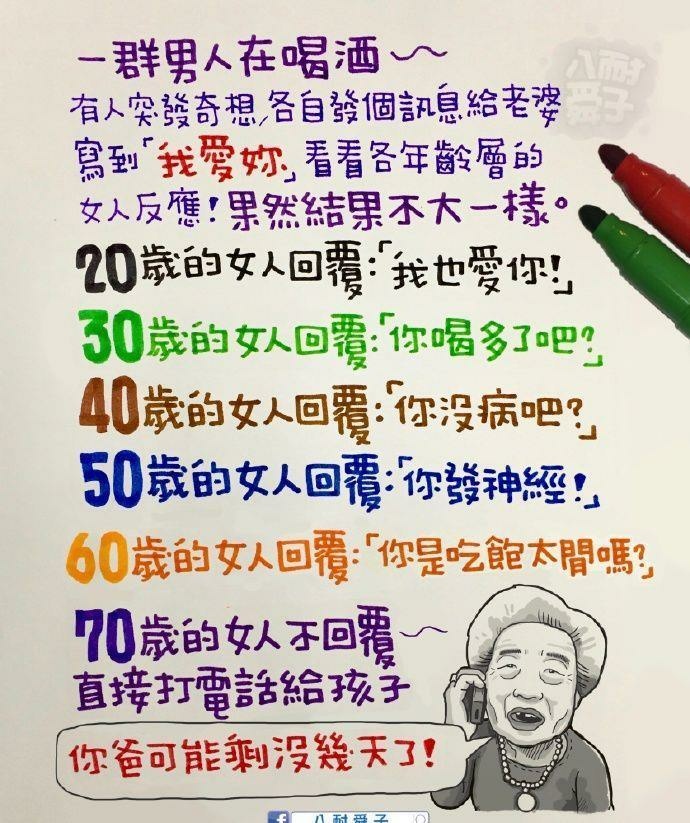 一群男人在喝酒～
八耐
舜子
有人突發奇想,各自發個訊息給老婆
寫到「我愛妳」看看各年齡層的
女人反應!果然結果不大一樣。
20歲的女人回覆:「我也愛你!」
30歲的女人回覆:「你喝多了吧?」
40歲的女人回覆:「你沒病吧?」
50歲的女人回覆:「你發神經!」
60歲的女人回覆:「你是吃飽太閒嗎?」
70歲的女人不回覆～
直接打電話給孩子
你爸可能剩沒幾天了!
f 八耐舜子